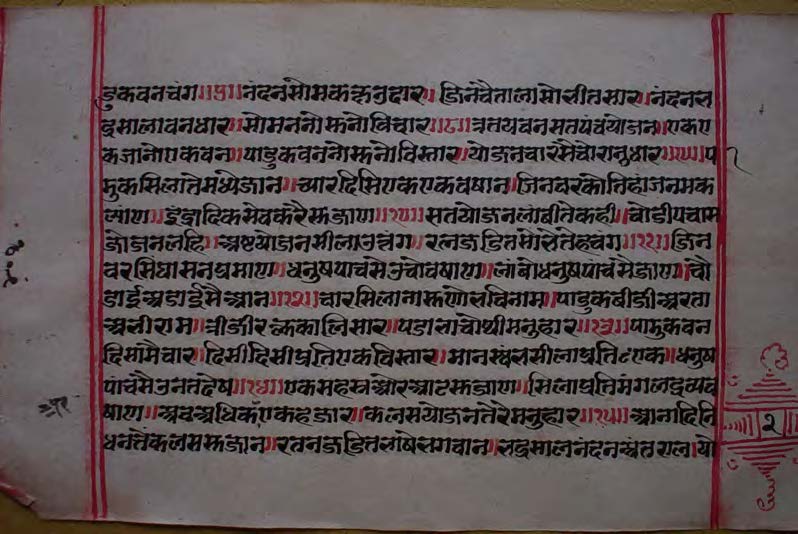 डुकवनचंग॥७॥नंदनसोमकह्मनुहार॥जिनचैतालासोलीतसार॥नंदनभ
द्रसालावनधार॥सोमननौसनोविचार॥८॥त्रतयवनसतपंचयोजन॥एकए
कजानोएकवन॥पाडुकवननौसनोविस्तार॥योजनचारसैचोरानुधार॥१९॥प
मुकसिलातेमध्येजान॥च्यारदिसिएकएकवषान॥जिनवरकोतिहांजनमक
ल्पाण॥इंद्रादिकसेवकरैसुजाण॥१०॥सतयोजनलांबीतेकही॥चोडीपचास
जोजनलहि॥अष्टयोजनसीलाउचंग॥रत्नजडितसोभेतेहचंग॥११॥जिन
वरसिंघासनप्रमाण॥धनुषपाचसेउचोवषाण॥लांबोधनुषपाचसैजाण॥चौ
डाईअडाईसैआन॥१२॥चारसिलानासुणोभविनाम॥पाडुकबीजीअरता
अभीराम॥त्रीजीरक्तकालिसार॥पडालाचोथीमनुहार॥१३॥पामुकवन
दिसांमैचार॥दिसीदिसीप्रतिएकविस्तार॥मानस्थंभसीलाप्रतिटएक॥धनुष
पांचसैउनतदेष॥१४॥एकसहस्रओरआटसुजाण॥सिलाप्रतिमंगलद्रव्यव
षाण॥अवअधिकएकहजार॥कलसयोजनतेरेमनुहार॥१५॥आनादिनि
धनतेकलससुजान॥रतनजडितभाषेभगवान॥भद्रसालनंदनअंतराल॥यो
२